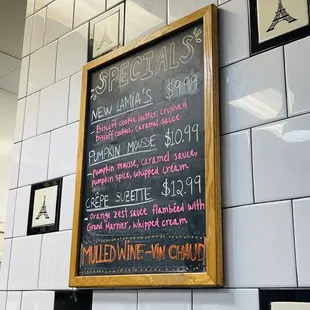 SPECIALS
NEW LAMIA'S $9.99
- BISCOFF COOKIE BUTTER, CRUSHED
BISCOFF COOKIES, CARAMEL SAUCE
PUMPKIN MOUSSE $10.99
- PUMPKIN MOUSSE, CARAMEL SAUCE,
PUMPKIN SPICE, WHIPPED CREAM
CRÊPE SUZETTE $12.99
- ORANGE ZEST SAUCE FLAMBÉED WITH
GRAND MARNIER, WHIPPED CREAM
MULLED WINE - VIN CHAUD